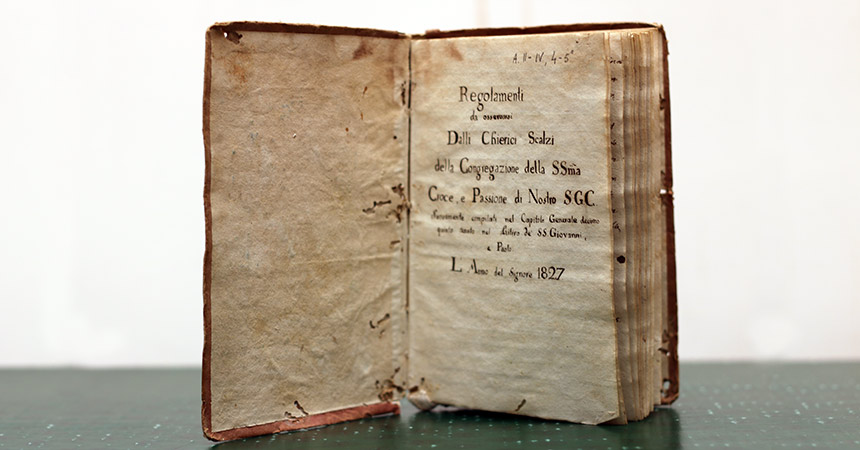 A. II-IV, 4-5
Regolamenti
da osservarsi
Dalli Chierici Scalzi
della Congregazione della SSma
Croce, e Passione di Nostro S.G.C.
compilati nel Capitolo Generale decimo
quinto tenuto nel Ritiro de' SS. Giovanni,
e Paolo
L'Anno del Signore 1827